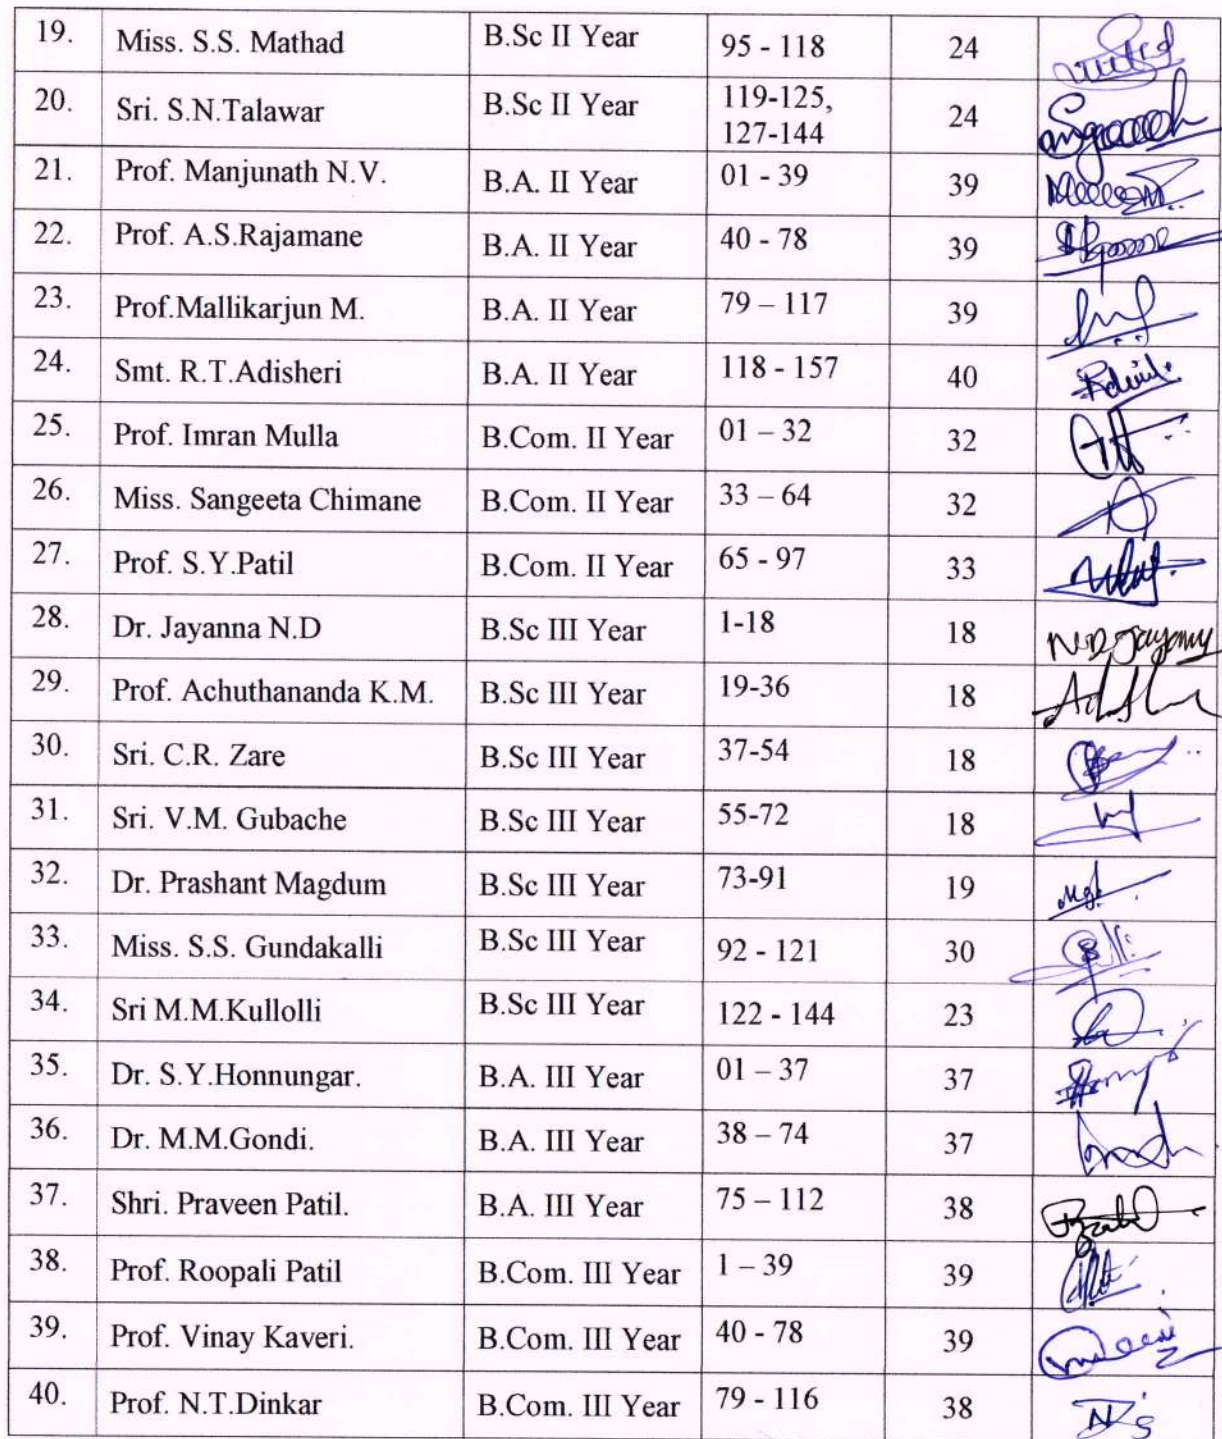 19. Miss. S.S. Mathad B.Sc II Year 95 - 118 24
20. Sri. S.N.Talawar B.Sc II Year 119-125, 24
127-144
21. Prof. Manjunath N.V. B.A. II Year 01 - 39 39
22. Prof. A.S.Rajamane B.A. II Year 40 - 78 39
23. Prof.Mallikarjun M. B.A. II Year 79 – 117 39
24. Smt. R.T.Adisheri B.A. II Year 118 - 157 40
25. Prof. Imran Mulla B.Com. II Year 01 – 32 32
26. Miss. Sangeeta Chimane B.Com. II Year 33 – 64 32
27. Prof. S.Y.Patil B.Com. II Year 65 - 97 33
28. Dr. Jayanna N.D B.Sc III Year 1-18 18
29. Prof. Achuthananda K.M. B.Sc III Year 19-36 18
30. Sri. C.R. Zare B.Sc III Year 37-54 18
31. Sri. V.M. Gubache B.Sc III Year 55-72 18
32. Dr. Prashant Magdum B.Sc III Year 73-91 19
33. Miss. S.S. Gundakalli B.Sc III Year 92 - 121 30
34. Sri M.M.Kullolli B.Sc III Year 122 - 144 23
35. Dr. S.Y.Honnungar. B.A. III Year 01 – 37 37
36. Dr. M.M.Gondi. B.A. III Year 38 – 74 37
37. Shri. Praveen Patil. B.A. III Year 75 – 112 38
38. Prof. Roopali Patil B.Com. III Year 1 – 39 39
39. Prof. Vinay Kaveri. B.Com. III Year 40 - 78 39
40. Prof. N.T.Dinkar B.Com. III Year 79 - 116 38